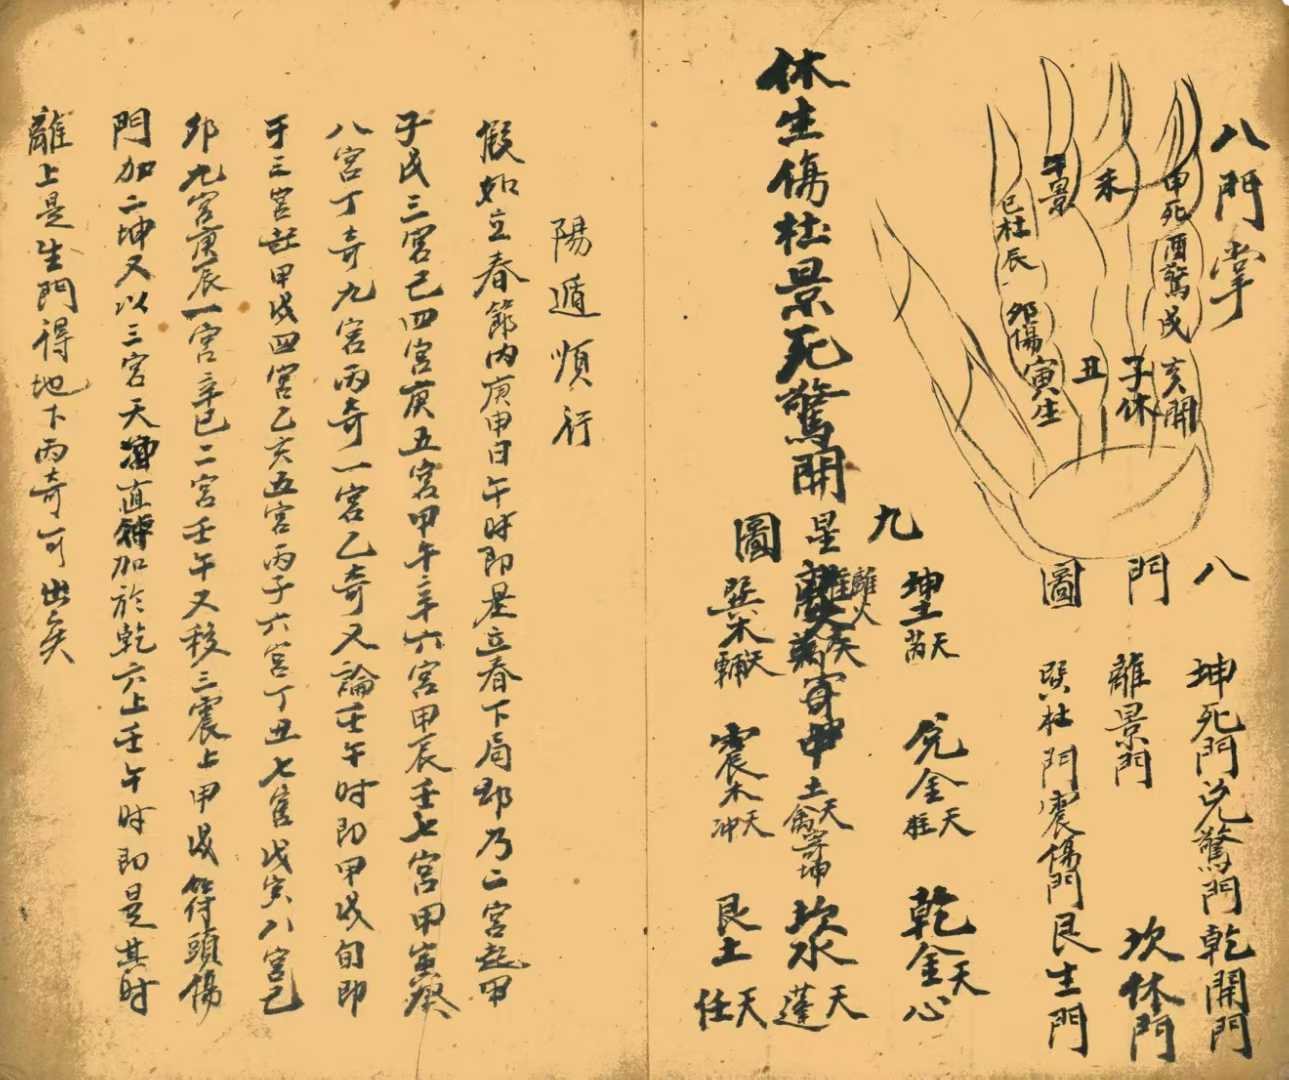 八門掌
申死
酉驚
戌
亥開
未
子休
午景
丑
巳杜
辰
卯傷
寅生
八門圖
坤死門兌驚門乾開門
離景門
坎休門
巽杜門震傷門艮生門
休生傷杜景死驚開
九星圖
坤土天芮
兌金天柱
乾金天心
離火
寄中土天禽寄坤
坎水天蓬
巽木天輔
震木天冲
艮土天任
陽遁順行
假如立春節內庚申日午時即是立春下局郡乃二宮起甲
子戊三宮己四宮庚五宮甲午辛六宮甲辰壬七宮甲寅癸
八宮丁奇九宮丙奇一宮乙奇又論壬午時即甲戌旬即
于三宮起甲戌四宮乙亥五宮丙子六宮丁丑七宮戊寅八宮己
卯九宮庚辰一宮辛巳二宮壬午又移三震上甲戌符頭傷
門加二坤又以三宮天冲直符加於乾六上壬午時即是其時
離上是生門得地下丙奇可出矣